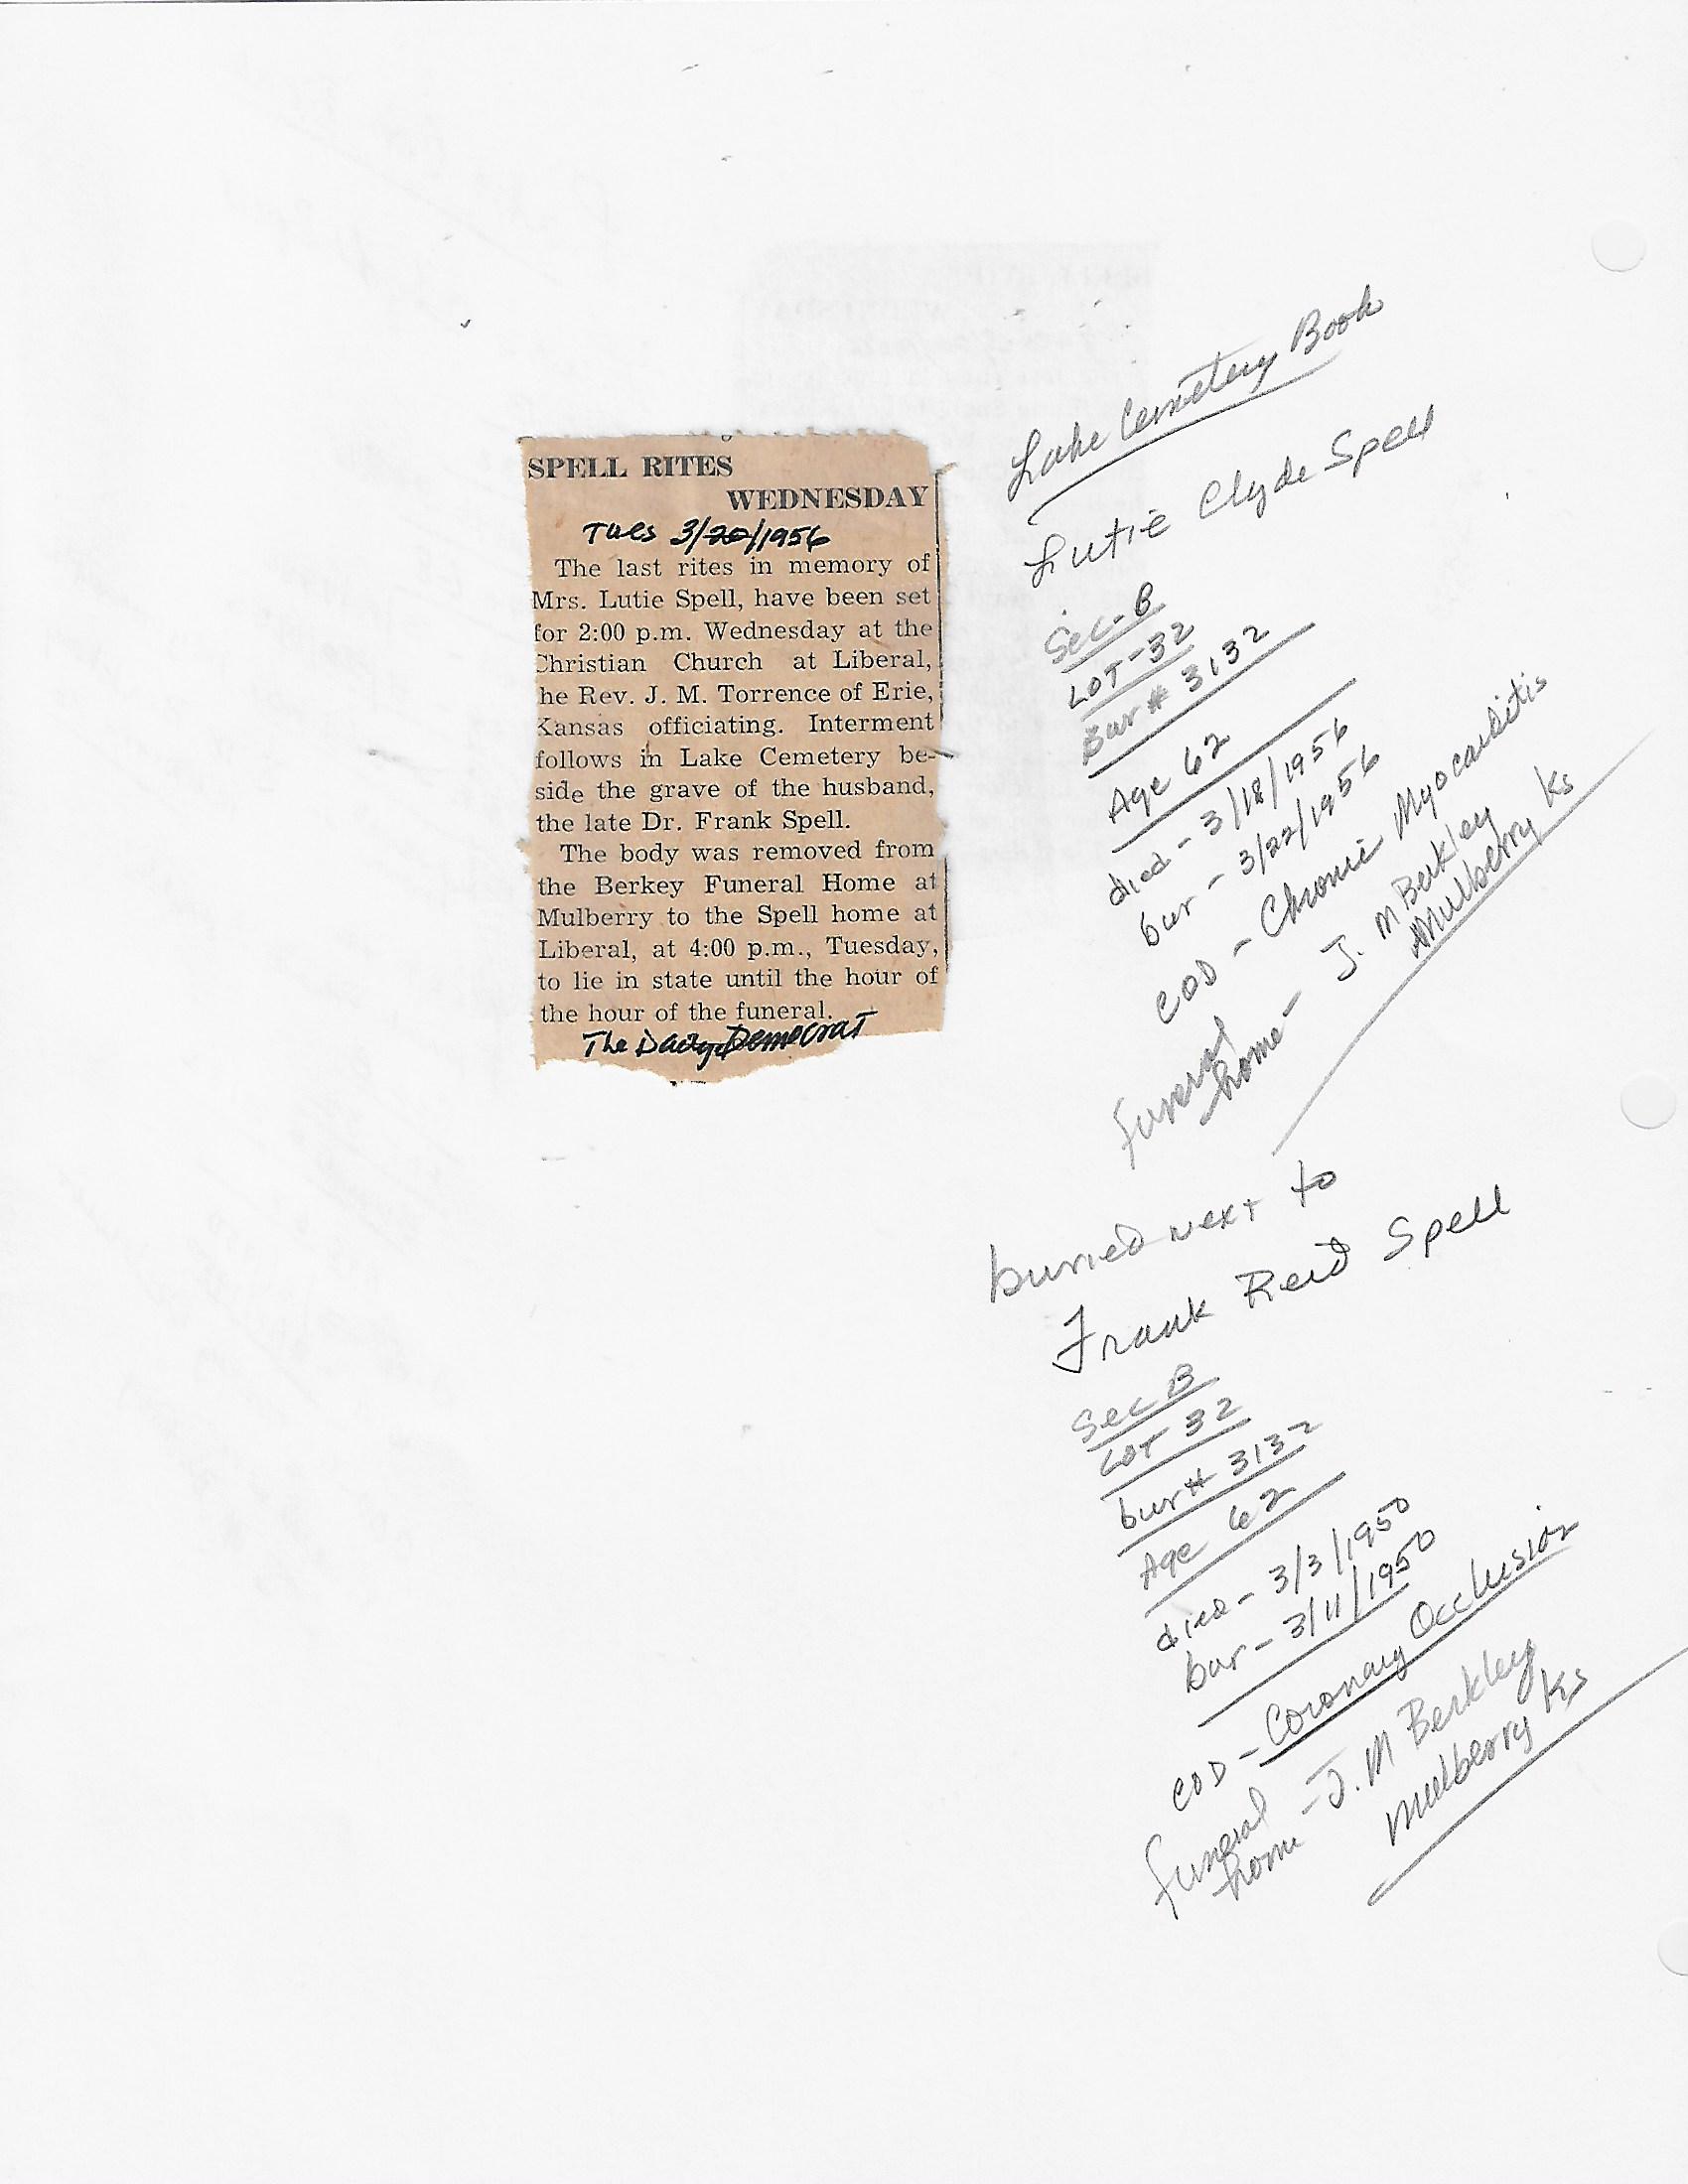 SPELL RITES
WEDNESDAY
Tues 3/20/1956
The last rites in memory of
Mrs. Lutie Spell, have been set
for 2:00 p.m. Wednesday at the
Christian Church at Liberal,
he Rev. J. M. Torrence of Erie,
Kansas officiating. Interment
follows in Lake Cemetery be-
side the grave of the husband,
the late Dr. Frank Spell.
The body was removed from
the Berkey Funeral Home at
Mulberry to the Spell home at
Liberal, at 4:00 p.m., Tuesday,
to lie in state until the hour of
the hour of the funeral.
The Daily Democrat
Lake Cemetery Book
Lutie Clyde Spell
Sec-B
LOT-32
Bur # 3132
Age 62
died - 3/18/1956
bur - 3/22/1956
COD - Chronic Myocarditis
funeral
home - J. M Berkley
Mulberry Ks
buried next to
Frank Reid Spell
Sec B
LOT 32
bur# 3132
Age 62
died - 3/3/1950
bur - 3/11/1950
COD - Coronary Occlusion
funeral
home - J. M Berkley
Mulberry Ks